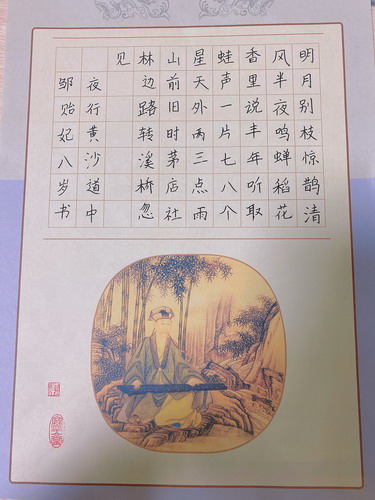 明月别枝惊鹊清
风半夜鸣蝉稻花
香里说丰年听取
蛙声一片七八个
星天外两三点雨
山前旧时茅店社
林边路转溪桥忽
见
夜行黄沙道中
邹贻妃八岁书